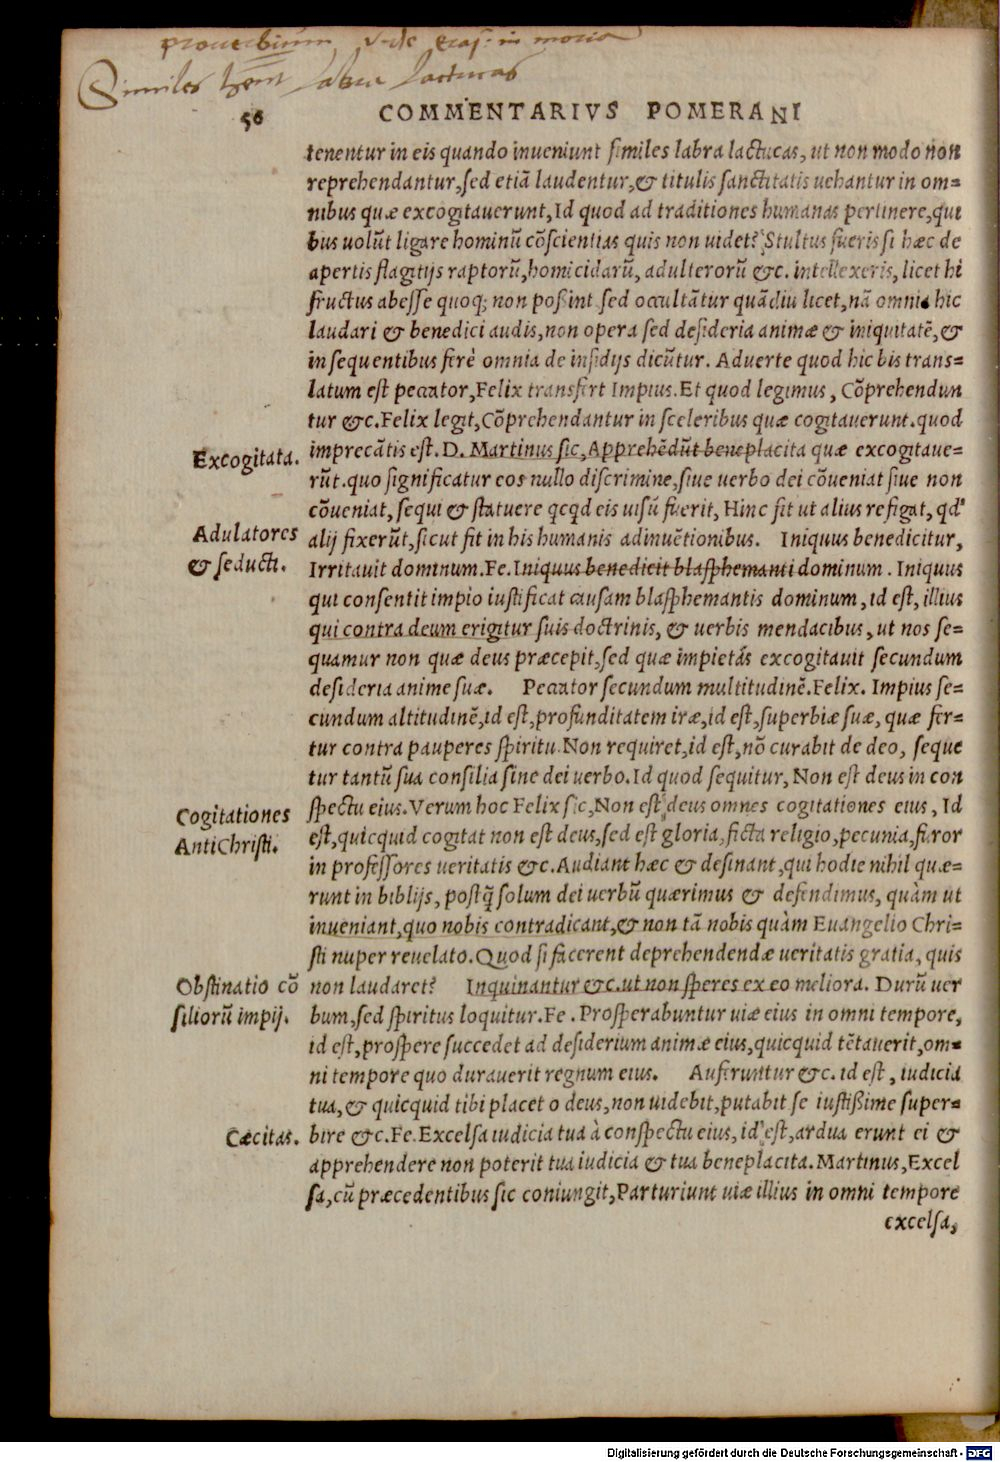 prouerbium vide eras: in moria
Similes hent labra lactucas
56 COMMENTARIVS POMERANI
tenentur in eis quando inueniunt similes labra lactucas, ut non modo non
reprehendantur, sed etiã laudentur, & titulis sanctitatis uehantur in om=
nibus quæ excogitauerunt, Id quod ad traditiones humanas pertinere, qui
bus uolũt ligare hominũ cõscientias quis non uidet? Stultus fueris si hæc de
apertis flagitijs raptorũ, homicidarũ, adulterorũ &c. intellexeris, licet hi
fructus abesse quoq; non poßint sed occultãtur quãdiu licet, nã omnia hic
laudari & benedici audis, non opera sed desideria animæ & iniquitatẽ, &
in sequentibus ferè omnia de insidijs dicũtur. Aduerte quod hic bis trans=
latum est peccator, Felix transfert Impius. Et quod legimus, Cõprehendun
tur &c. Felix legit, Cõprehendantur in sceleribus quæ cogitauerunt. quod
Excogitata.
imprecãtis est. D. Martinus sic, Apprehẽdũt beneplacita quæ excogitaue=
rũt. quo significatur eos nullo discrimine, siue uerbo dei cõueniat siue non
cõueniat, sequi & statuere qcqd eis uisũ fuerit, Hinc fit ut alius refigat, qd'
Adulatores
& seducti.
alij fixerũt, sicut fit in his humanis adinuẽtionibus. Iniquus benedicitur,
Irritauit dominum. Fe. Iniquus benedicit blasphemanti dominum. Iniquus
qui consentit impio iustificat causam blasphemantis dominum, id est, illius
qui contra deum erigitur suis doctrinis, & uerbis mendacibus, ut nos se=
quamur non quæ deus præcepit, sed quæ impietás excogitauit secundum
desideria anime suæ. Peccator secundum multitudinẽ. Felix. Impius se=
cundum altitudinẽ, id est, profunditatem iræ, id est, superbiæ suæ, quæ fer=
tur contra pauperes spiritu. Non requiret, id est, nõ curabit de deo, seque
tur tantũ sua consilia sine dei uerbo. Id quod sequitur, Non est deus in con
Cogitationes
AntiChristi.
spectu eius. Verum hoc Felix sic, Non est deus omnes cogitationes eius, Id
est, quicquid cogitat non est deus, sed est gloria, ficta religio, pecunia, furor
in professores ueritatis &c. Audiant hæc & desinant, qui hodie nihil quæ=
runt in biblijs, postq̃ solum dei uerbũ quærimus & defendimus, quàm ut
inueniant, quo nobis contradicant, & non tã nobis quàm Euangelio Chri=
sti nuper reuelato. Quod si facerent deprehendendæ ueritatis gratia, quis
Obstinatio cõ
siliorũ impij.
non laudaret? Inquinantur &c. ut non speres ex eo meliora. Durũ uer
bum, sed spiritus loquitur. Fe. Prosperabuntur uiæ eius in omni tempore,
id est, prospere succedet ad desiderium animæ eius, quicquid tẽtauerit, om=
ni tempore quo durauerit regnum eius. Auferuntur &c. id est, iudicia
tua, & quicquid tibi placet o deus, non uidebit, putabit se iustißime super=
Cæcitas.
bire &c. Fe. Excelsa iudicia tua à conspectu eius, id est, ardua erunt ei &
apprehendere non poterit tua iudicia & tua beneplacita. Martinus, Excel
sa, cũ præcedentibus sic coniungit, Parturiunt uiæ illius in omni tempore
excelsa,
Digitalisierung gefördert durch die Deutsche Forschungsgemeinschaft - DFG